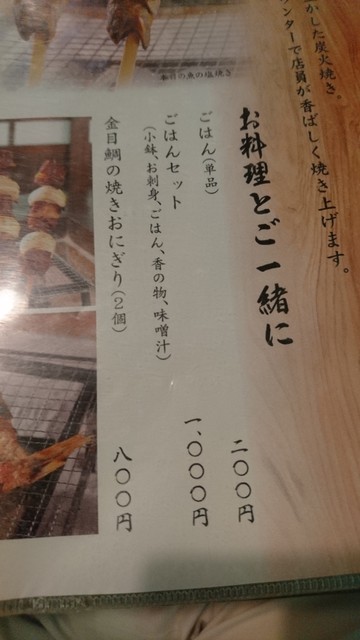 かした炭火焼き。
ンターで店員が香ばしく焼き上げます。
お料理とご一緒に
ごはん(単品) 二〇〇円
ごはんセット 一、〇〇〇円
(小鉢、お刺身、ごはん、香の物、味噌汁)
金目鯛の焼きおにぎり(2個) 八〇〇円
の魚の塩焼き